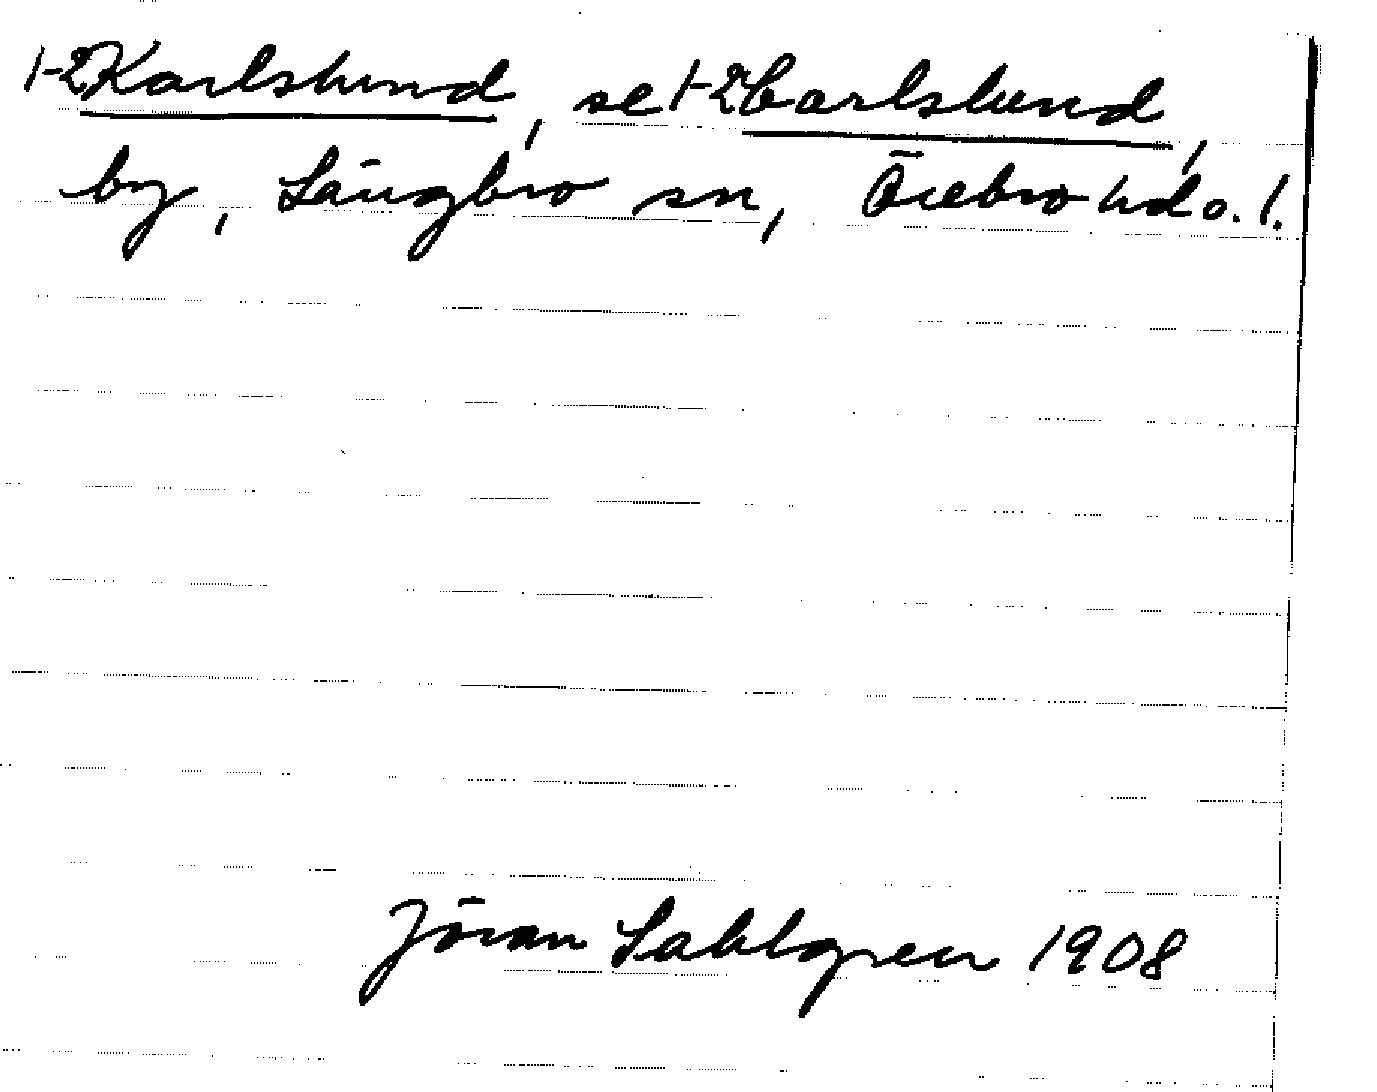 1-2 Karlslund, se 1-2 Carlslund,
by, Längbro sn, Örebro hd o. l.
Jöran Sahlgren 1908